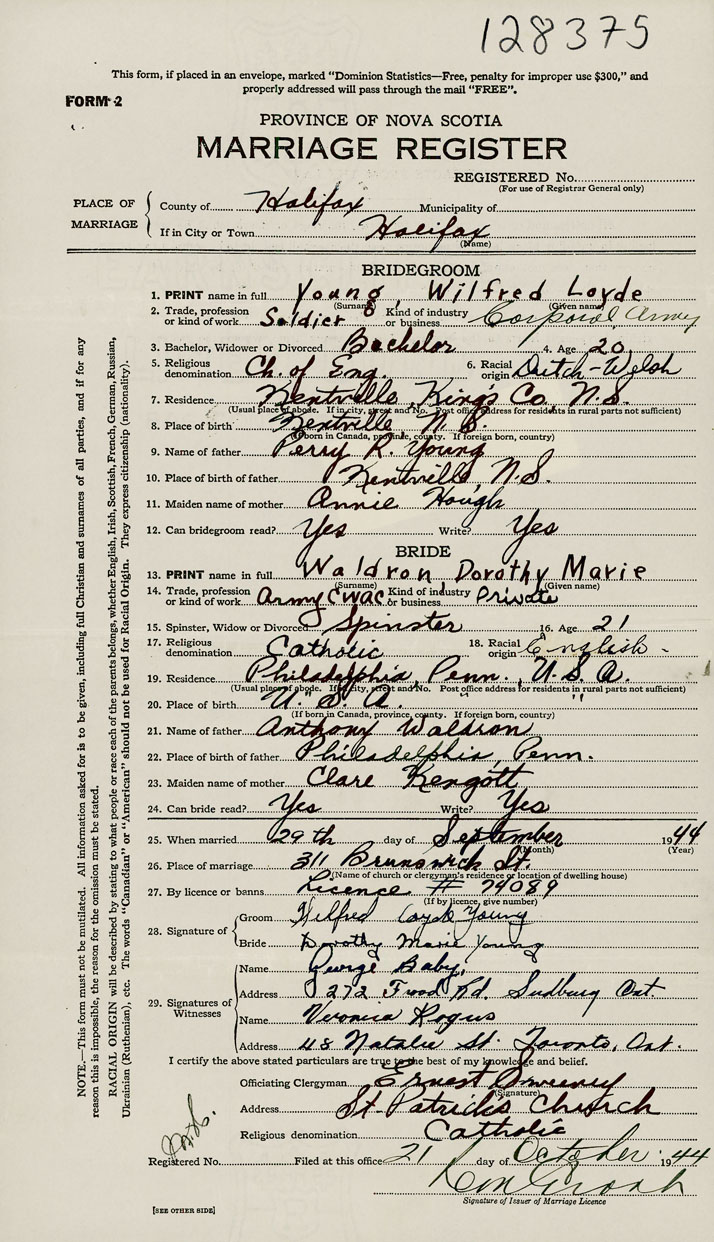 128375
This form, if placed in an envelope, marked "Dominion Statistics—Free, penalty for improper use $300," and
properly addressed will pass through the mail "FREE".
FORM 2
PROVINCE OF NOVA SCOTIA
MARRIAGE REGISTER
REGISTERED No.
(For use of Registrar General only)
PLACE OF MARRIAGE
County of Halifax Municipality of
If in City or Town Halifax
(Name)
BRIDEGROOM
1. PRINT name in full Young, Wilfred Loyde
(Surname) (Given name)
2. Trade, profession or kind of work Soldier Kind of industry or business Corporal Army
3. Bachelor, Widower or Divorced Bachelor 4. Age 20
5. Religious denomination Ch. of Eng. 6. Racial origin Dutch-Welsh
7. Residence Kentville, King's Co. N.S.
(Usual place of abode. If in city, street and No. Post office address for residents in rural parts not sufficient)
8. Place of birth Kentville N.S.
(If born in Canada, province, county. If foreign born, country)
9. Name of father Perry R. Young
10. Place of birth of father Kentville, N.S.
11. Maiden name of mother Annie Hough
12. Can bridegroom read? Yes Write? Yes
BRIDE
13. PRINT name in full Waldron, Dorothy Marie
(Surname) (Given name)
14. Trade, profession or kind of work Army CWAC Kind of industry or business Private
15. Spinster, Widow or Divorced Spinster 16. Age 21
17. Religious denomination Catholic 18. Racial origin English -
19. Residence Philadelphia, Penn., U.S.A.
(Usual place of abode. If in city, street and No. Post office address for residents in rural parts not sufficient)
20. Place of birth U.S.A. " "
(If born in Canada, province, county. If foreign born, country)
21. Name of father Anthony Waldron
22. Place of birth of father Philadelphia, Penn.
23. Maiden name of mother Clare Kengott
24. Can bride read? Yes Write? Yes
25. When married 29th day of September 1944
(Month) (Year)
26. Place of marriage 311 Brunswick St.
(Name of church or clergyman's residence or location of dwelling house)
27. By licence or banns Licence # 79089
(If by licence, give number)
28. Signature of
Groom Wilfred Loyde Young
Bride Dorothy Marie Young
29. Signatures of Witnesses
Name George Baby,
Address 272 Frood Rd. Sudbury Ont.
Name Veronica Rogus
Address 48 Natalie St. Toronto, Ont.
I certify the above stated particulars are true to the best of my knowledge and belief.
Officiating Clergyman Ernest Sweeney
(Signature)
Address St. Patrick's Church
Religious denomination Catholic
Registered No. Filed at this office 21 day of October 1944
Signature of Issuer of Marriage Licence
[SEE OTHER SIDE]
NOTE.—This form must not be mutilated. All information asked for is to be given, including full Christian and surnames of all parties, and if for any
reason this is impossible, the reason for the omission must be stated.
RACIAL ORIGIN will be described by stating to what people or race each of the parents belongs, whether English, Irish, Scottish, French, German, Russian,
Ukrainian (Ruthenian), etc. The words "Canadian" or "American" should not be used for Racial Origin. They express citizenship (nationality).